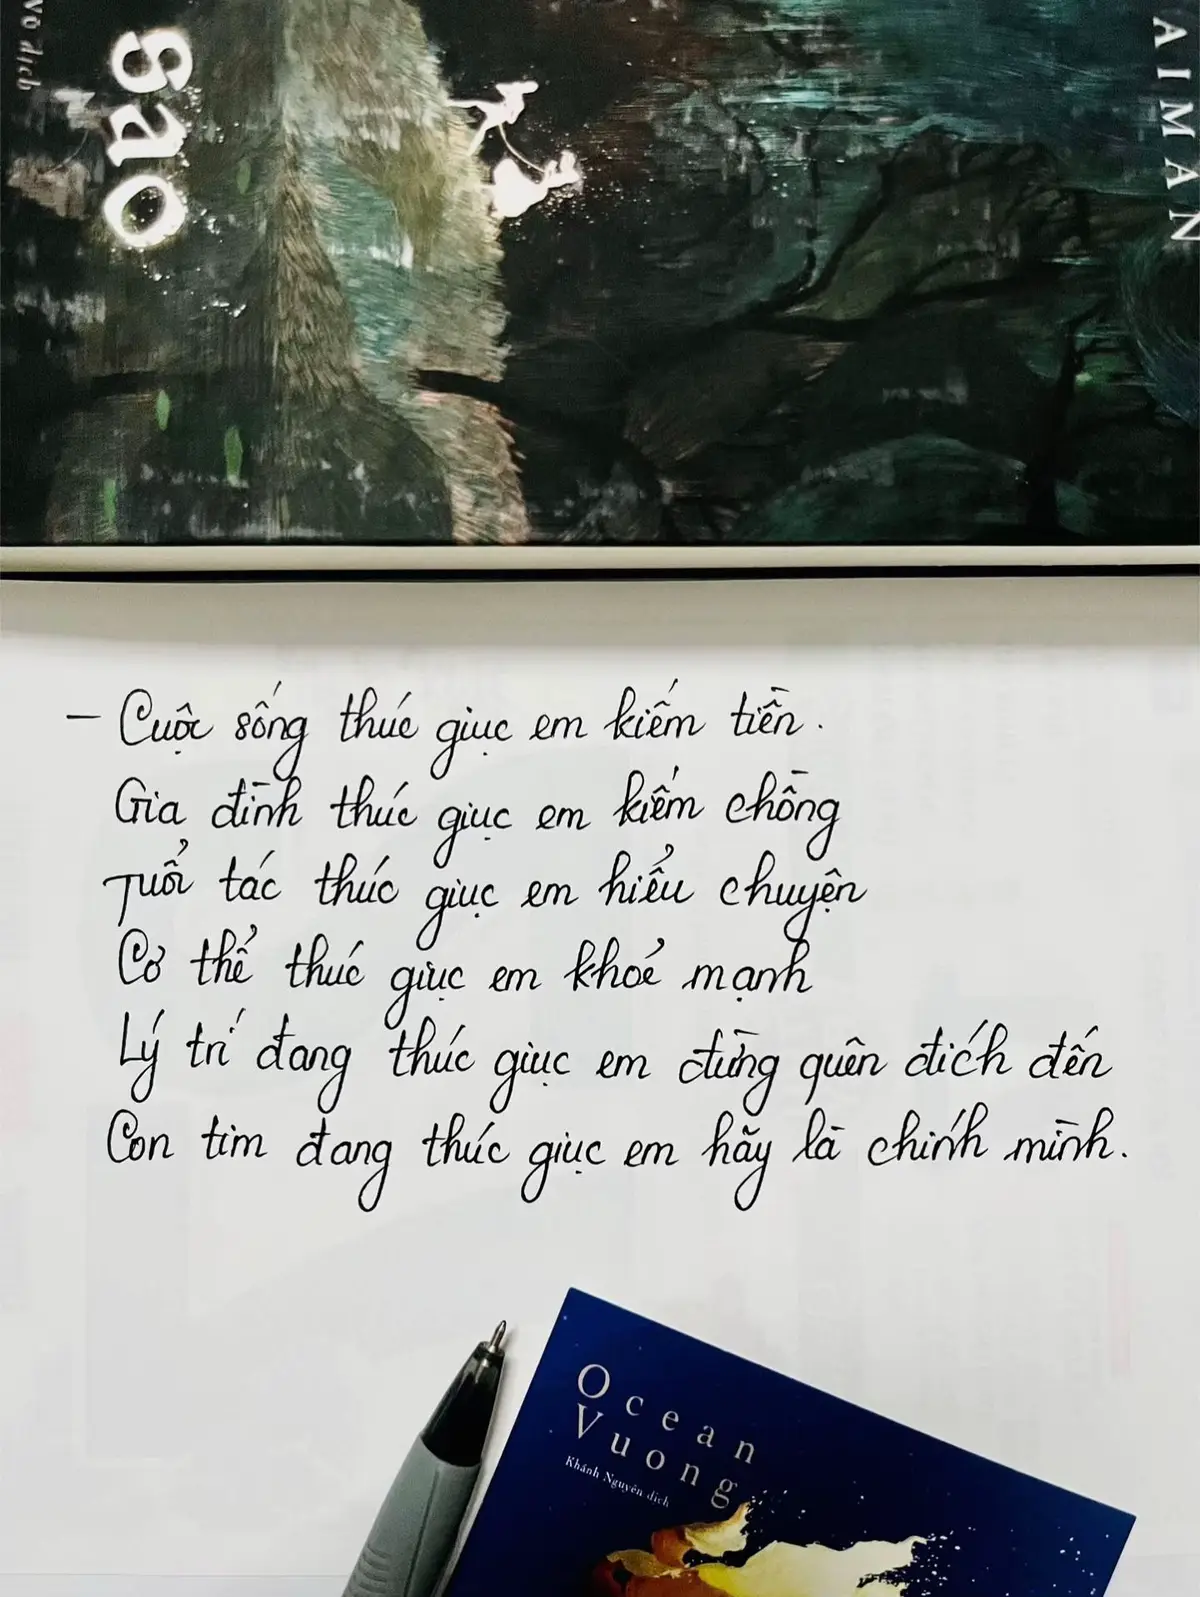 Võ dịch
sao
AIMAN
– Cuộc sống thúc giục em kiếm tiền.
Gia đình thúc giục em kiếm chồng
Tuổi tác thúc giục em hiểu chuyện
Cơ thể thúc giục em khoẻ mạnh
Lý trí đang thúc giục em đừng quên đích đến
Con tim đang thúc giục em hãy là chính mình.
Ocean
Vuong
Khánh Nguyên dịch